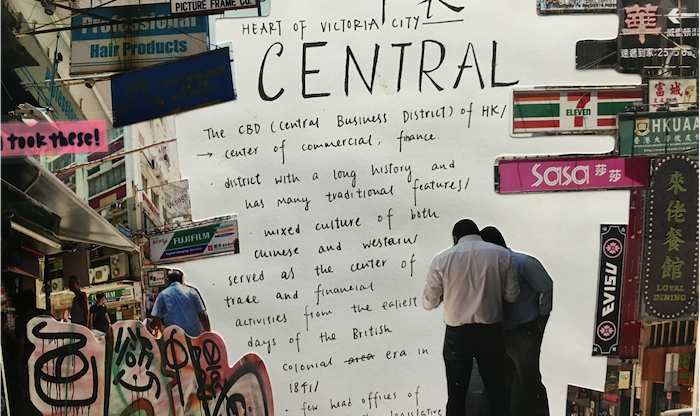 PICTURE FRAME CO.
Professional
Hair Products
I TOOK THESE!
FUJIFILM
HEART OF VICTORIA CITY
CENTRAL
THE CBD (Central Business District) of HK/
→ center of commercial, finance
· district with a long history, and
has many traditional features/
· mixed culture of both
chinese and western/
· served as the center of
trade and financial
activities from the ealiest
days of the British
colonial area era in
1841/
· few head offices of
legislative
華
速遞
富城
7
ELEVEN
HKUAA
SaSa 莎莎
EVISU
來佬餐館
LOYAL
DINING